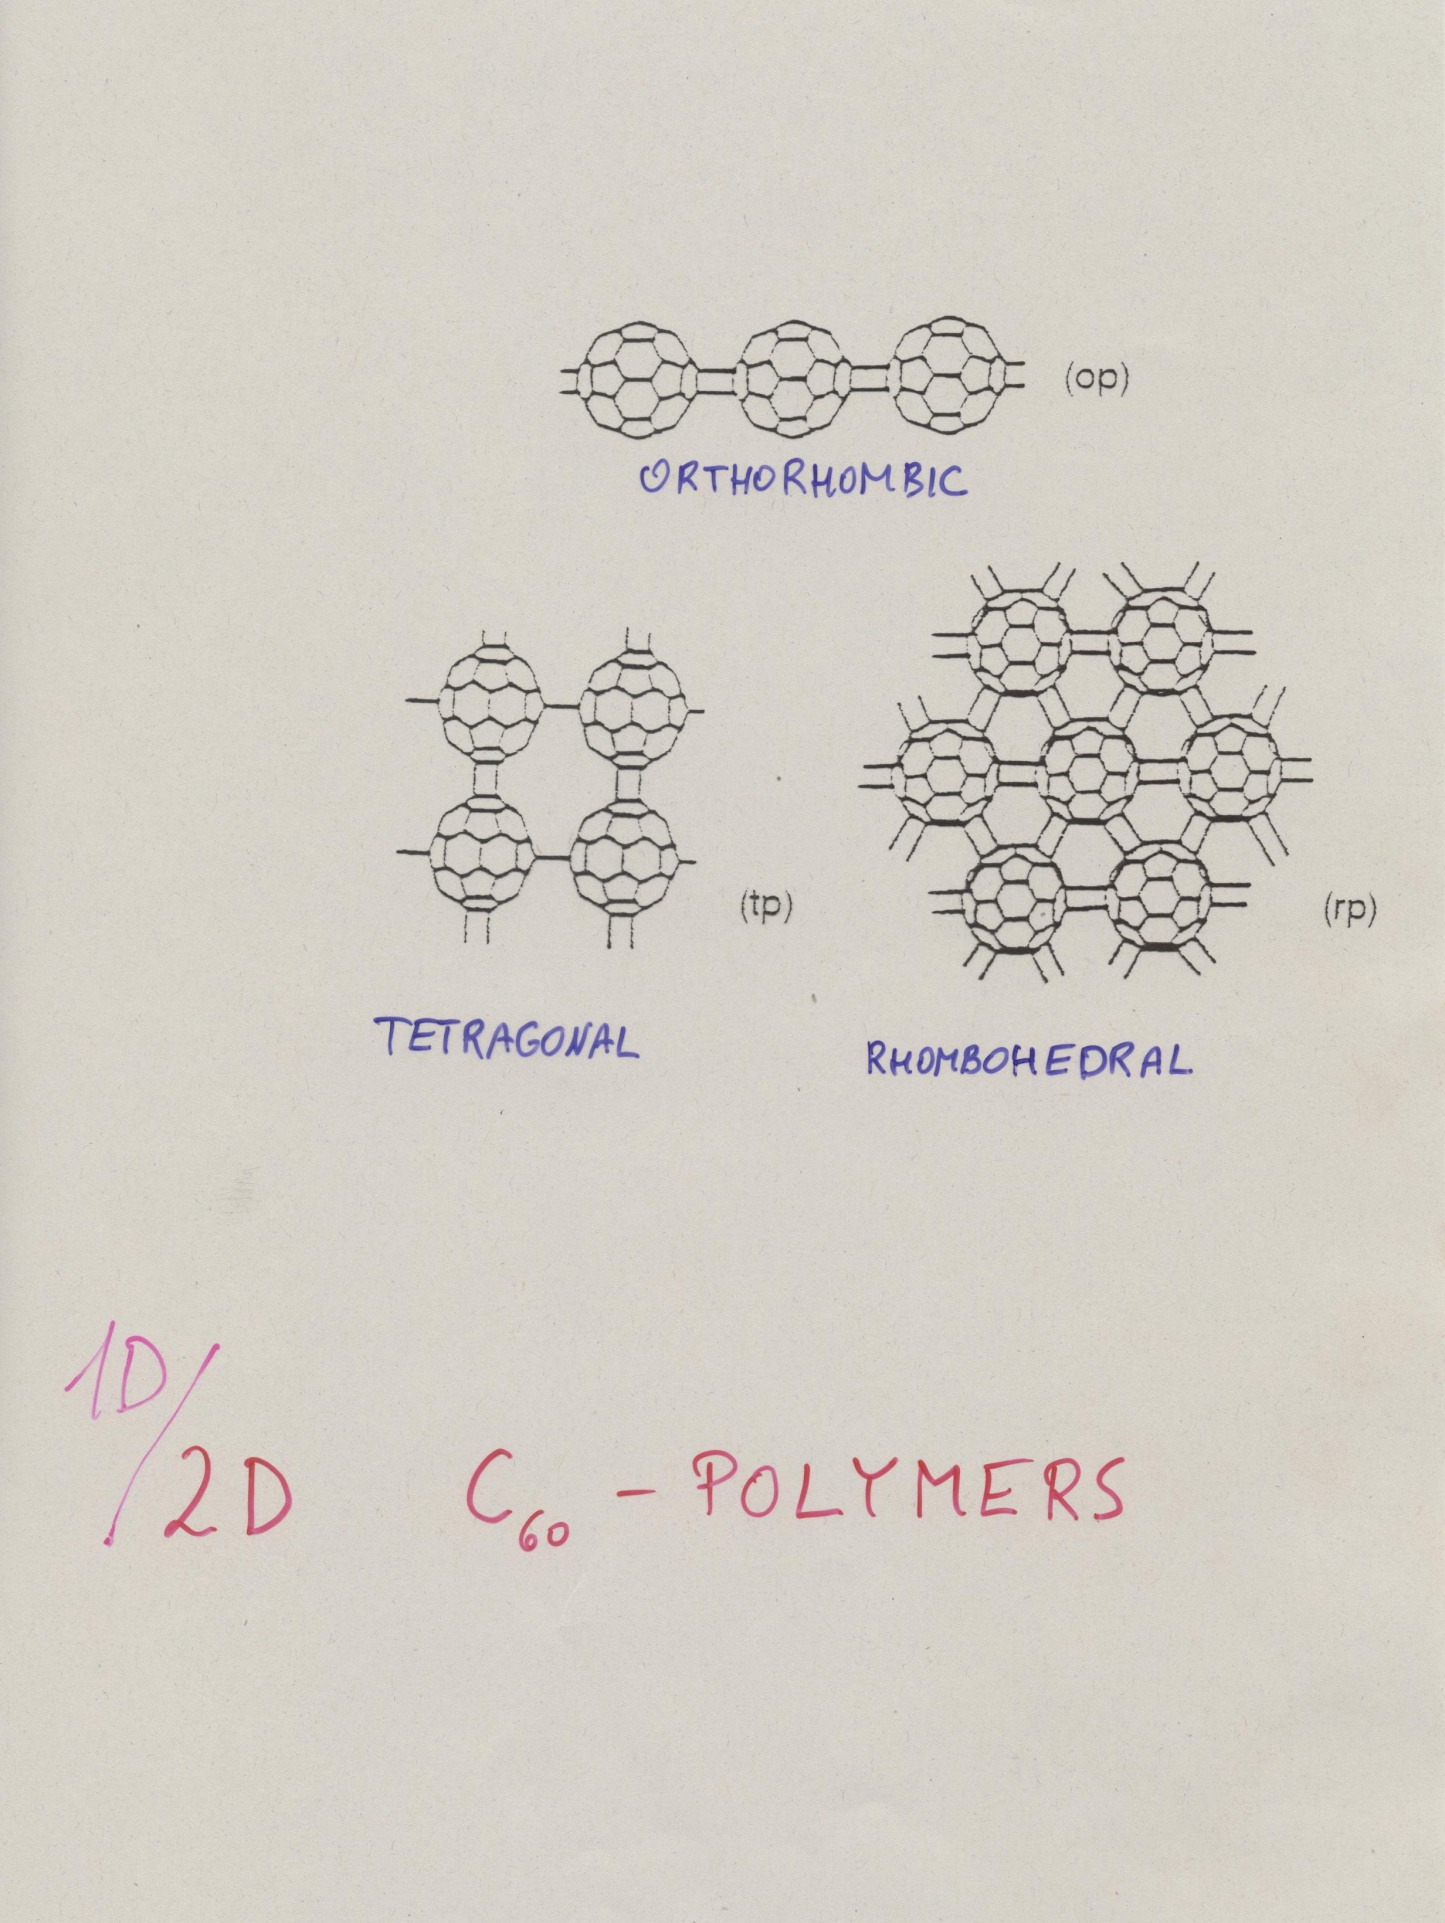 (op)
ORTHORHOMBIC
(tp)
(rp)
TETRAGONAL
RHOMBOHEDRAL
1D/
2D C₆₀ - POLYMERS